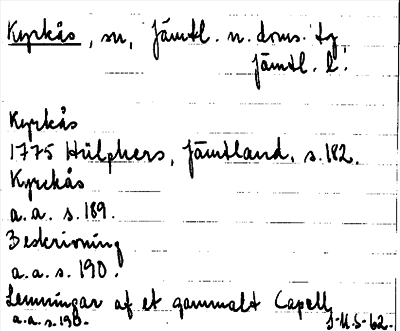 Kyrkås, sn, Jämtl. n. doms. tg
Jämtl. l.
Kyrkås
1775 Hülphers, Jämtland, s. 182.
Kyrkås
a.a. s. 189.
Beskrivning
a.a. s. 190.
Lemningar af et gammalt Capell
a.a. s. 190.